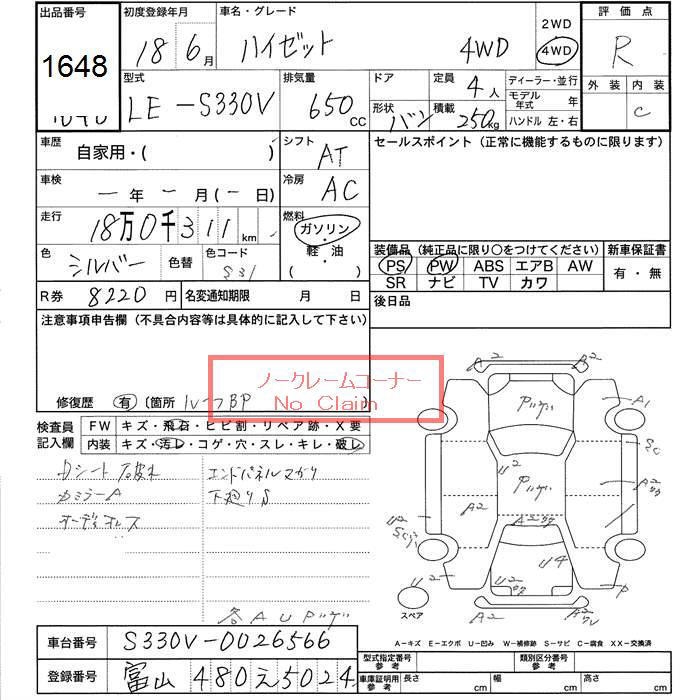 出品番号 初度登録年月 車名・グレード 2WD 評価点
1648 18 6月 ハイゼット 4WD 4WD R
型式 排気量 ドア 定員 4人 ディーラー・並行 外装 内装
LE-S330V 650cc 形状 バン 積載 250kg モデル年式 年 C
ハンドル 左・右
車歴 自家用・( ) シフト AT セールスポイント(正常に機能するものに限ります)
車検 ー年ー月(ー日) 冷房 AC
走行 18万0千311km 燃料 ガソリン・軽油 ( )
色 シルバー 色替 色コード S31 装備品(純正品に限り〇をつけてください) 新車保証書
PS PW ABS エアB AW 有・無
SR ナビ TV カワ
R券 8220円 名変通知期限 月 日 後日品
注意事項申告欄(不具合内容等は具体的に記入して下さい)
ノークレームコーナー
No Claim
修復歴 有 〔箇所 BP
検査員記入欄 FW キズ・飛石・ヒビ割・リペア跡・X要
内装 キズ・汚レ・コゲ・穴・スレ・キレ・破レ
Dシート破れ エンドパネルマガリ
カミラーA 下廻りS
オーディオレス
A2 A2
A1
A2
U2
A2
U4
U2 U2 P
スペア A2
A-キズ E-エクボ U-凹み W-補修跡 S-サビ C-腐食 XX-交換済
車台番号 S330V-0026566 型式指定番号 参考 類別区分番号 参考
登録番号 富山 480え5024 車庫証明用参考 長さ cm 幅 cm 高さ cm